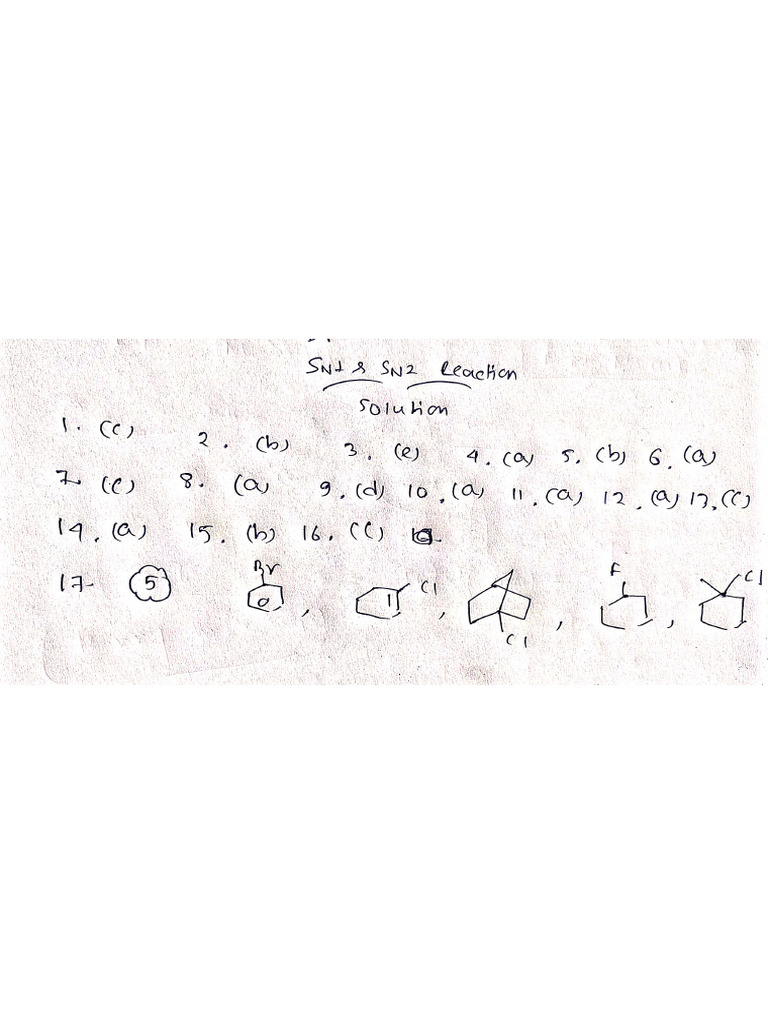 SN1 & SN2 Reaction
Solution
1. (c) 2. (b) 3. (c) 4. (a) 5. (b) 6. (a)
7. (c) 8. (a) 9. (d) 10. (a) 11. (a) 12. (a) 13. (c)
14. (a) 15. (b) 16. (c)
17. 5 Br , Cl , Cl , F , Cl